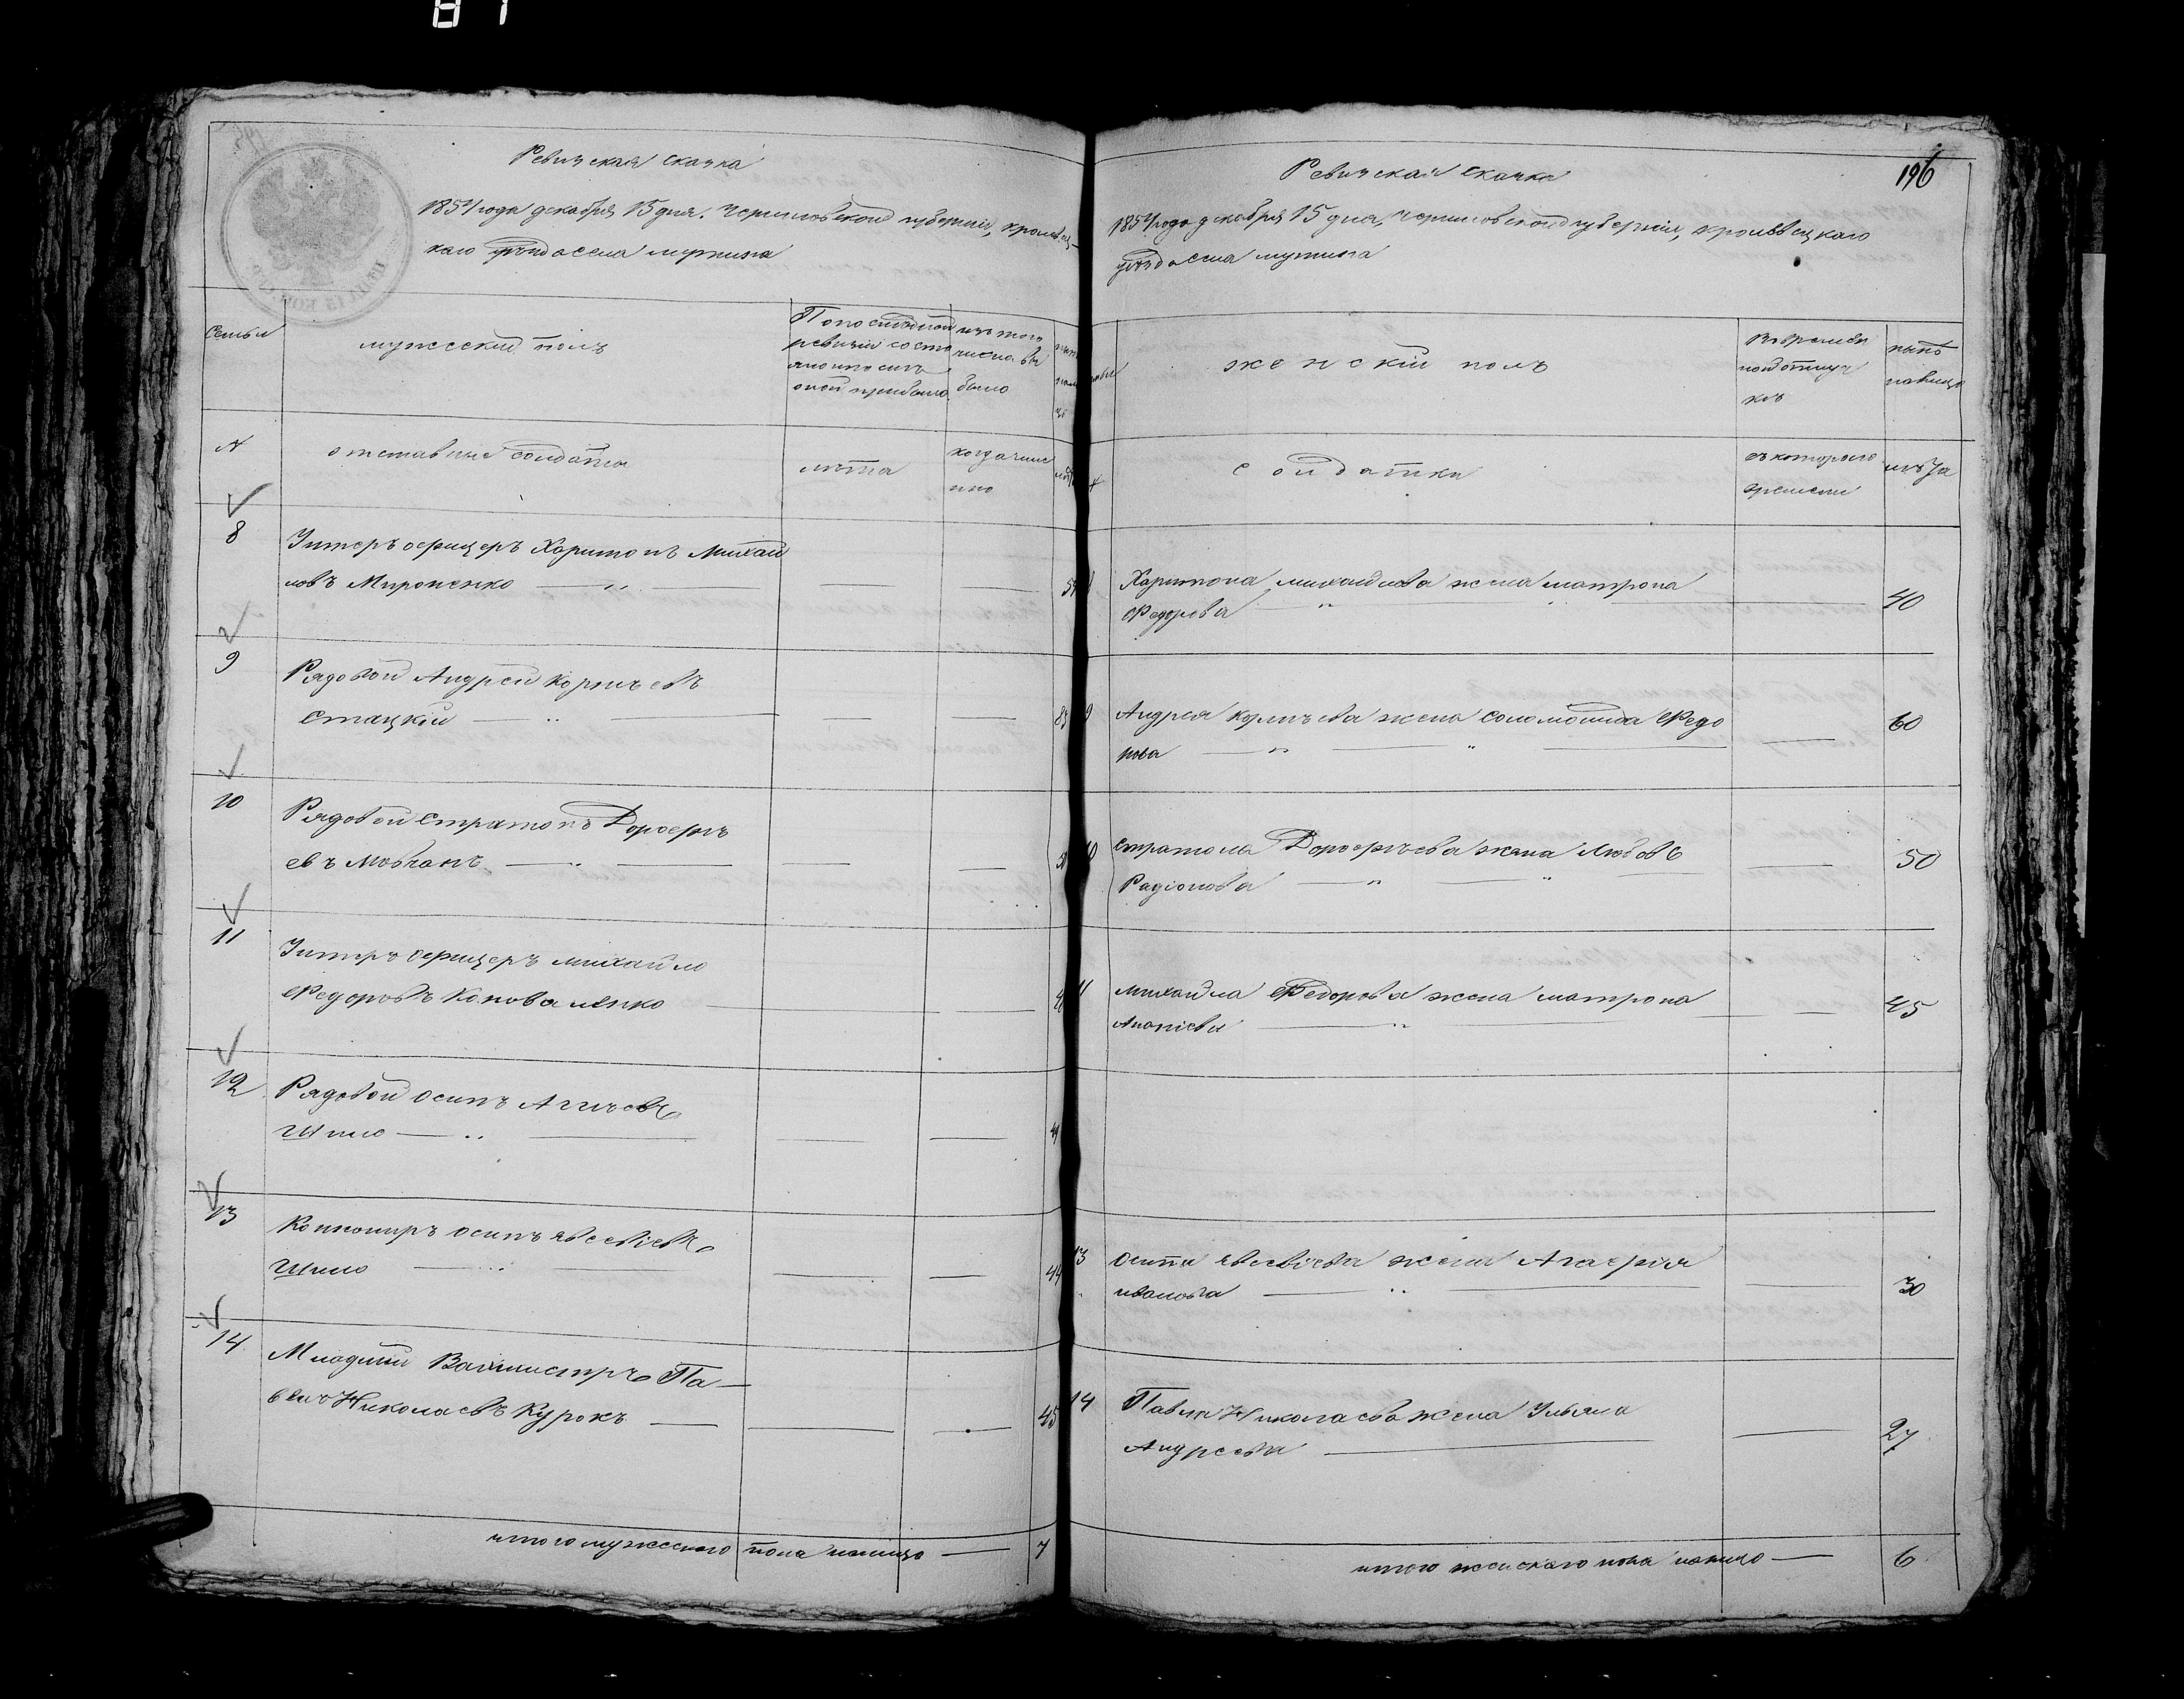 81
Ревизская сказка
1857 года декабря 15 дня. Черниговской губерніи, кролевец-
каго уѣзда села мутина
Семьи
мужеский полъ
По последней
ревизіи состо
яло и после
оной прибыло
изъ того
числа вы
было
№
отставные солдаты
лѣта
когда имен
нно
8
Унтеръ офицеръ Харитонъ Михай
ловъ Мироненко
9
Рядовой Андрей Корнѣевъ
Стацкій
10
Рядовой Стратонъ Дорофѣ
евъ Мовчанъ
11
Унтеръ офицеръ михайло
Федоровъ Коноваленко
12
Рядовой осипъ Агѣевъ
Шило
13
Коннониръ осипъ Явсевіевъ
Шило
44
14
Младшій Вахмистръ Па-
велъ Николаевъ Курокъ
45
итого мужескаго пола налицо 7
196
Ревизская сказка
1857 года декабря 15 дня, черниговской губерніи, кролевецкаго
уѣзда села мутина
женскій полъ
Въ временной
отлучкѣ
нынѣ
налицо
солдатки
съ котораго
времени
лѣта
Харитона михайлова жена матрона
Федорова
40
9
Андрея корнѣева жена соломонида Федо
рова
60
10
Стратона Дорофѣева жена Любовь
Радіонова
50
11
михайла Федорова жена матрона
Ананіева
45
13
Осипа явсевіева жена Агафія
иванова
30
14
Павла Николаева жена Ульяна
Андреева
27
итого женскаго пола налицо 6